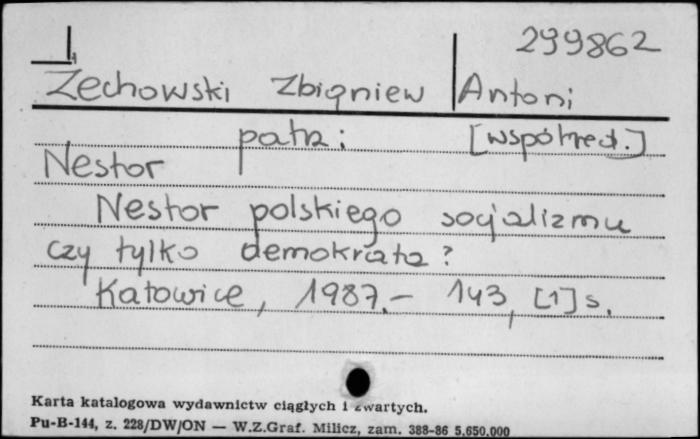 299862
Zechowski Zbigniew Antoni
patrz: [współred.]
Nestor
Nestor polskiego socjalizmu
czy tylko demokrata?
Katowice, 1987.- 143, [1] s.
Karta katalogowa wydawnictw ciągłych i zwartych.
Pu-B-144, z. 228/DW/ON — W.Z.Graf. Milicz, zam. 388-86 5.650.000